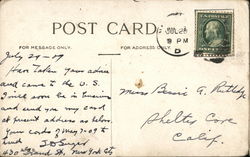 POST CARD
FOR MESSAGE ONLY.
FOR ADDRESS ONLY.
JUL 28
8 PM
D
July 29-09
Have Taken Your advice
and came to the U.S.
will soon be in
and send you my card
at present address as below.
Your cards of May 7-09 to
hand
430 Grand St. New York City
Miss Bessie G.
Shelly Cove
Calif.